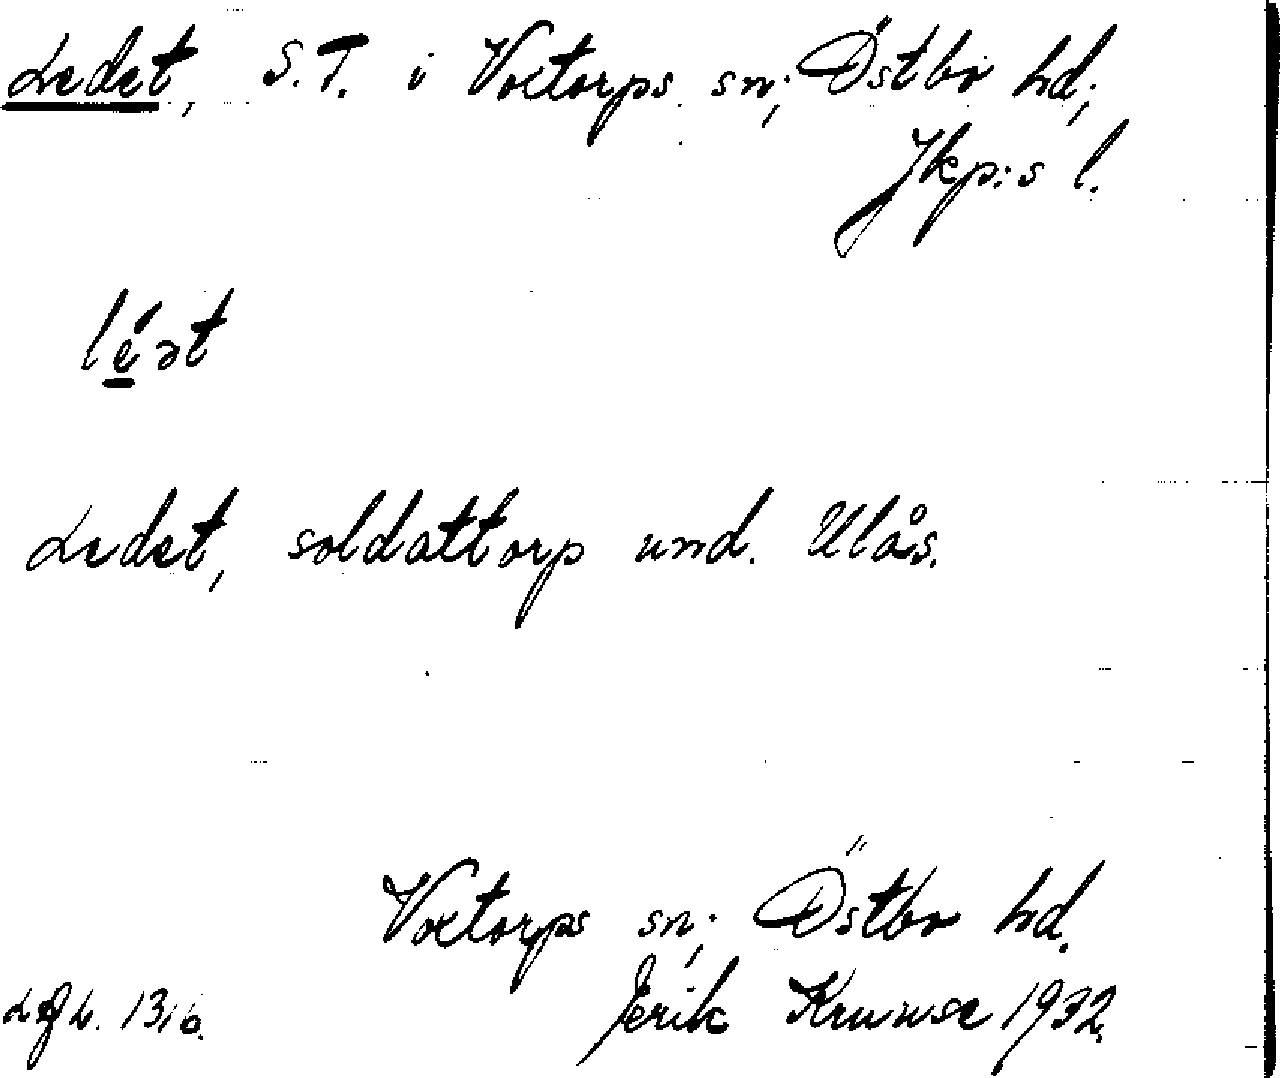 Ledet, S.T. i Voxtorps sn; Östbo hd;
Jkp:s l.
léət
Ledet, soldattorp und. Ulås.
Voxtorps sn; Östbo hd.
Jerik Kruuse 1932.
1316.